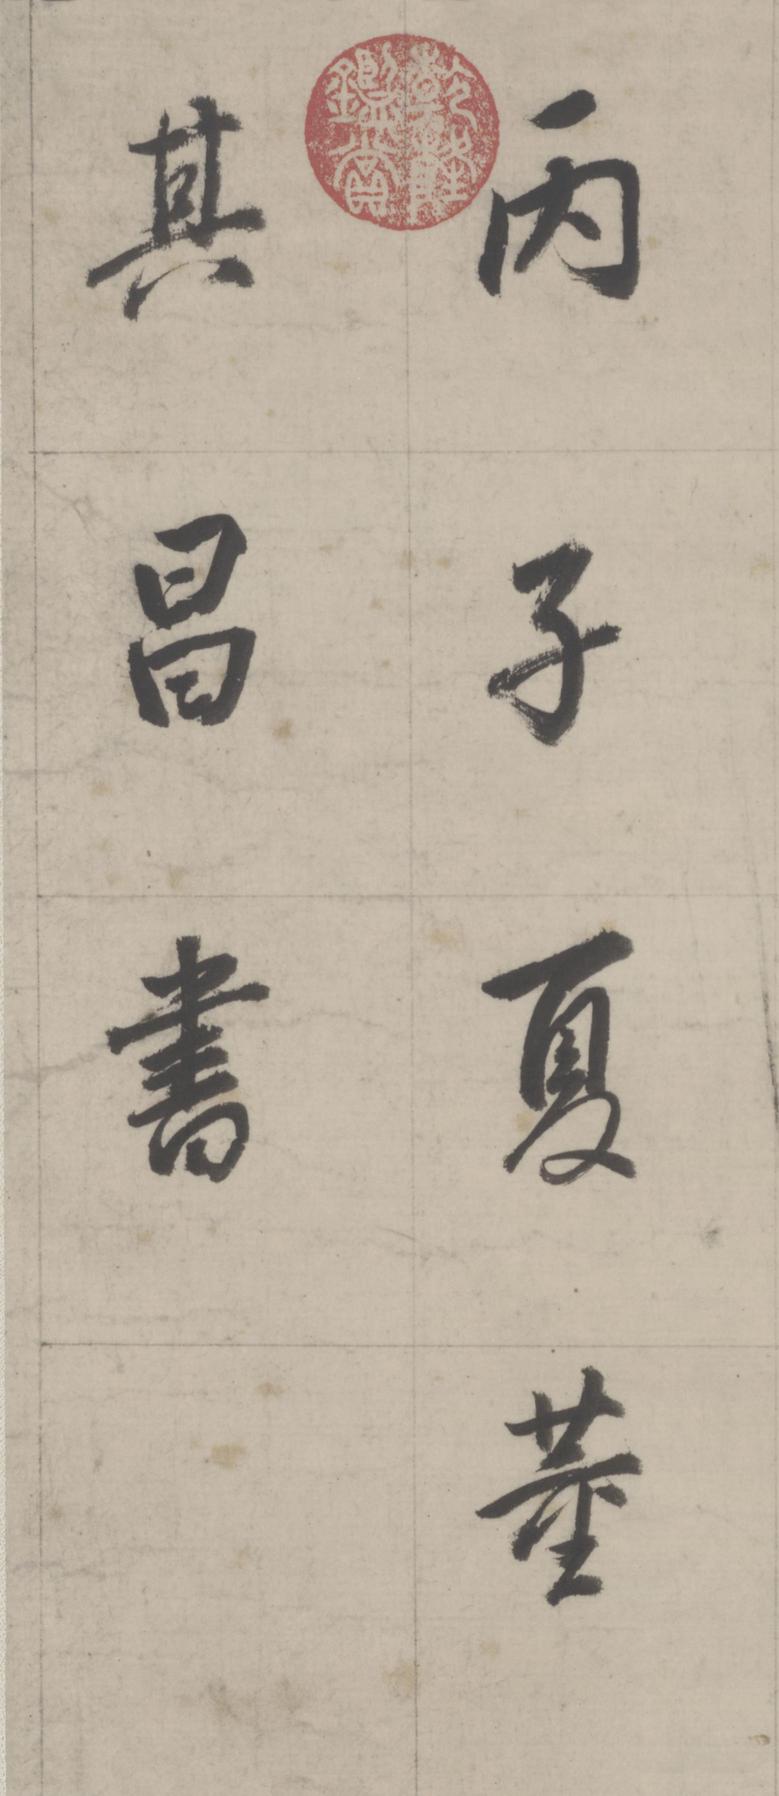 丙子夏董
其昌書
乾隆
鑑賞